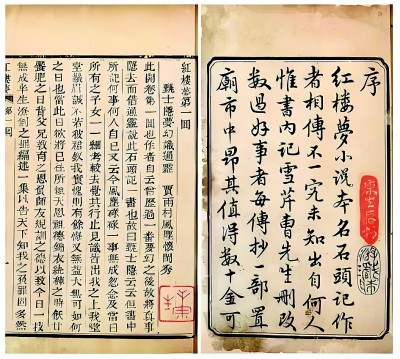 序
紅樓夢小說本名石頭記作
者相傳不一究未知出自何人
惟書內記雪芹曹先生刪改
數過好事者每傳抄一部置
廟市中昂其值得數十金可
紅樓夢第一回
甄士隱夢幻識通靈 賈雨村風塵懷閨秀
此開卷第一回也作者自云曾歷過一番夢幻之後故將真事
隱去而借通靈說此石頭記一書也故曰甄士隱云云但書中
所記何事何人自己又云今風塵碌碌一事無成忽念及當日
所有之女子一一細考較去覺其行止見識皆出我之上我堂
堂鬚眉誠不若彼裙釵我實愧則有餘悔又無益大無可如何
之日也當此日欲將已往所賴天恩祖德錦衣紈褲之時飫甘
饜肥之日背父兄教育之恩負師友規訓之德以致今日一技
無成半生潦倒之罪編述一集以告天下知我之負罪固多然
紅樓夢 第一回